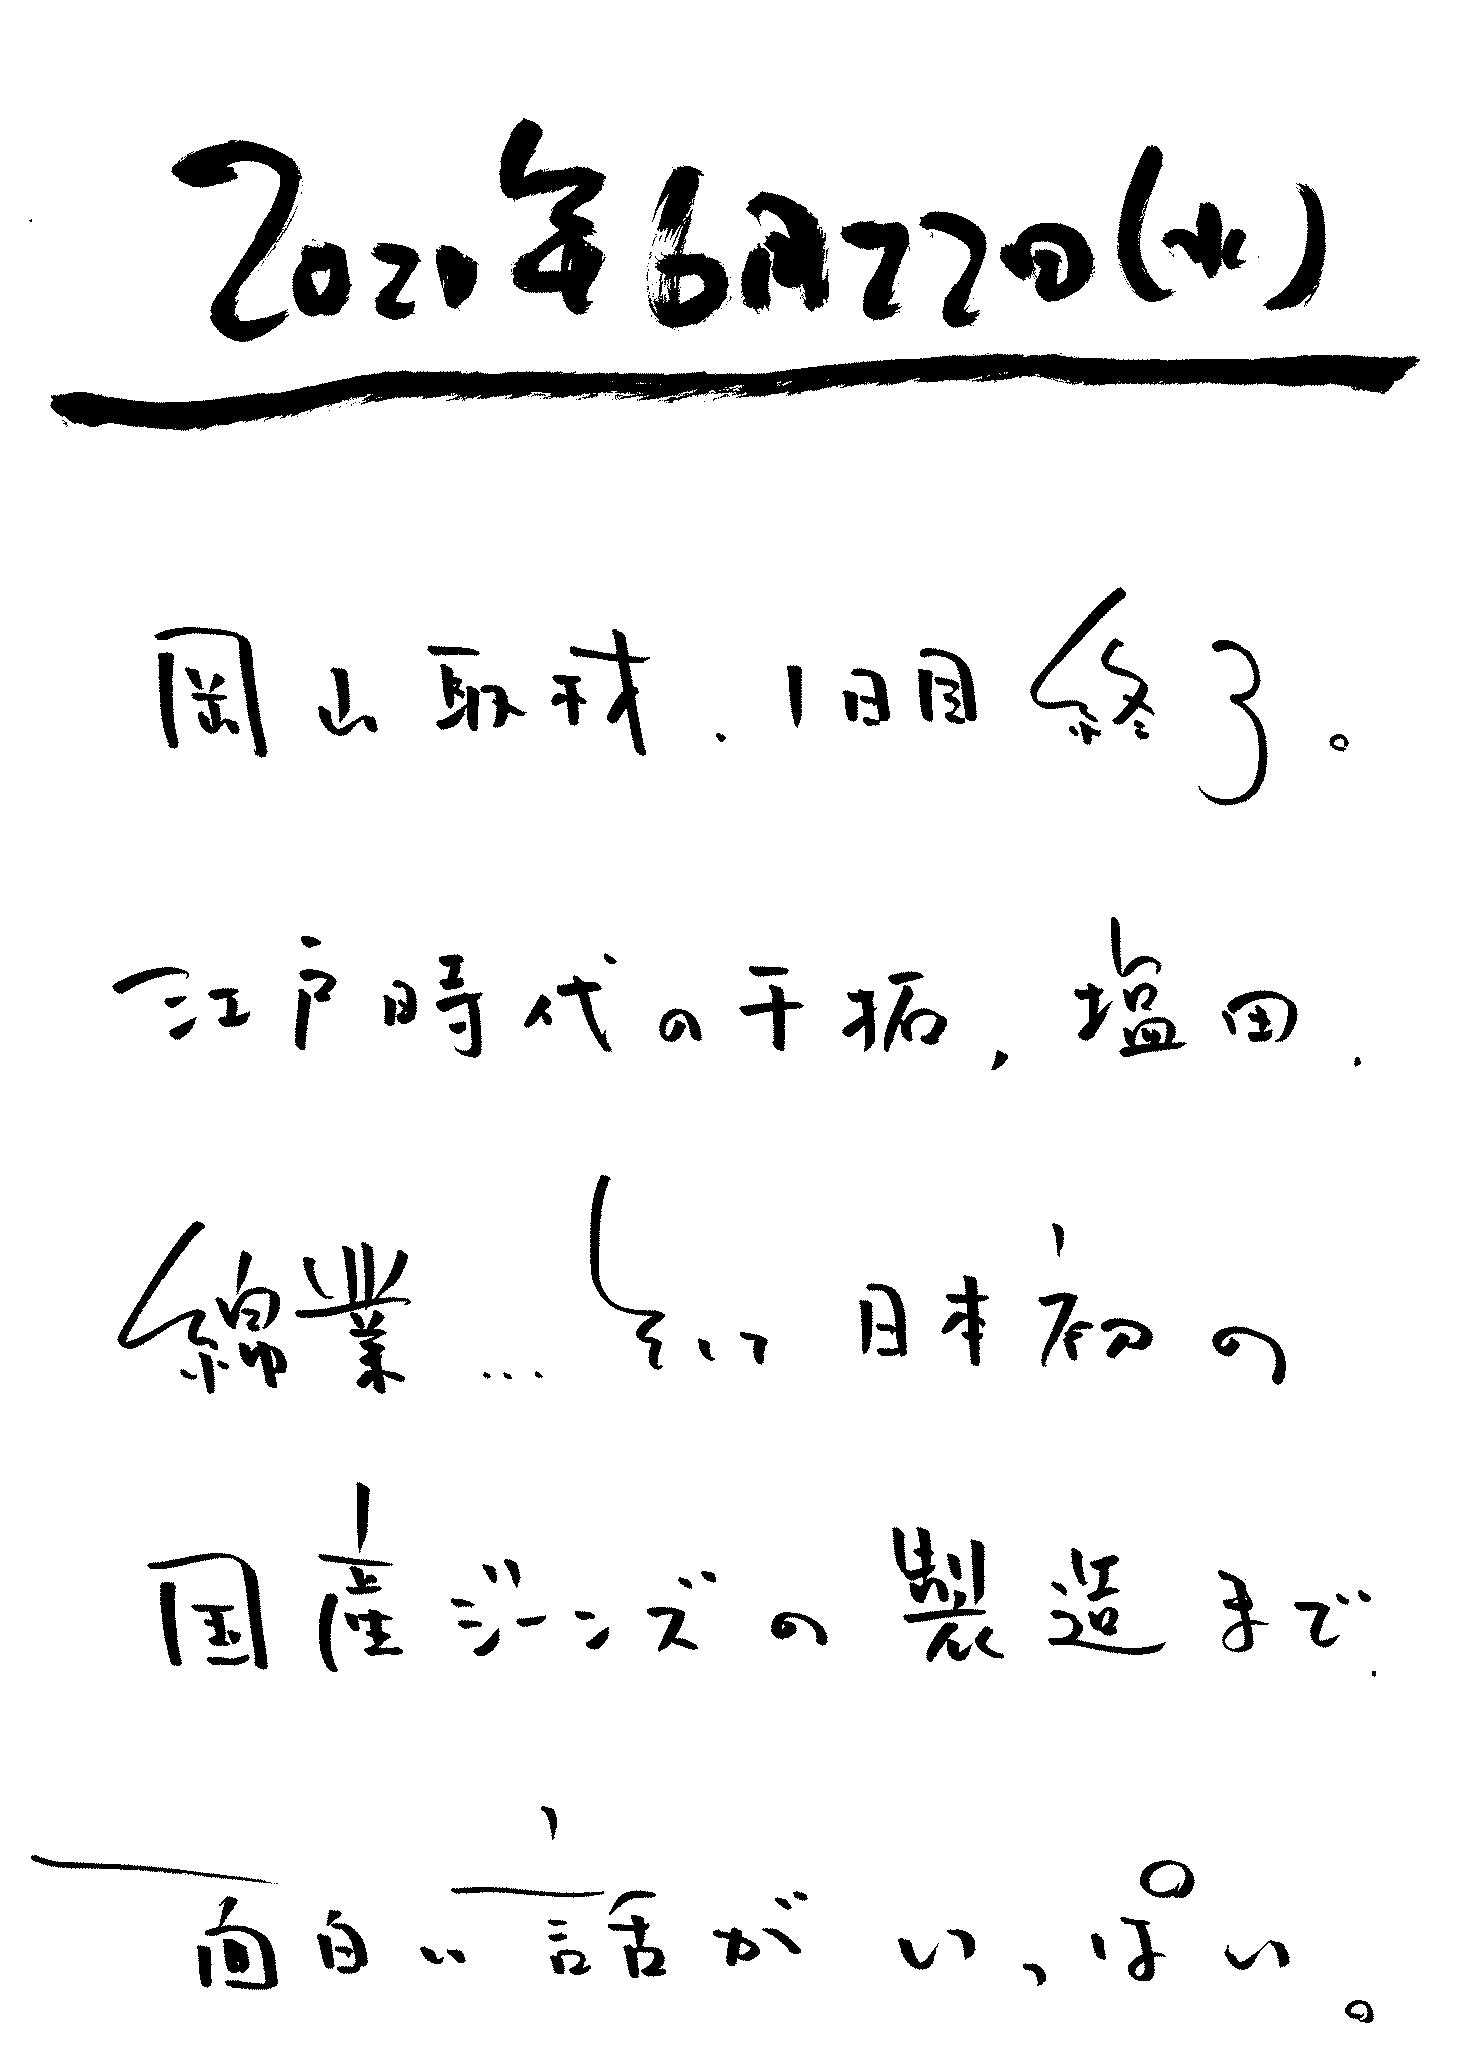 2021年6月22日(水)
岡山取材、1日目終了。
江戸時代の干拓、塩田、
綿業…そして日本初の
国産ジーンズの製造まで、
面白い話がいっぱい。